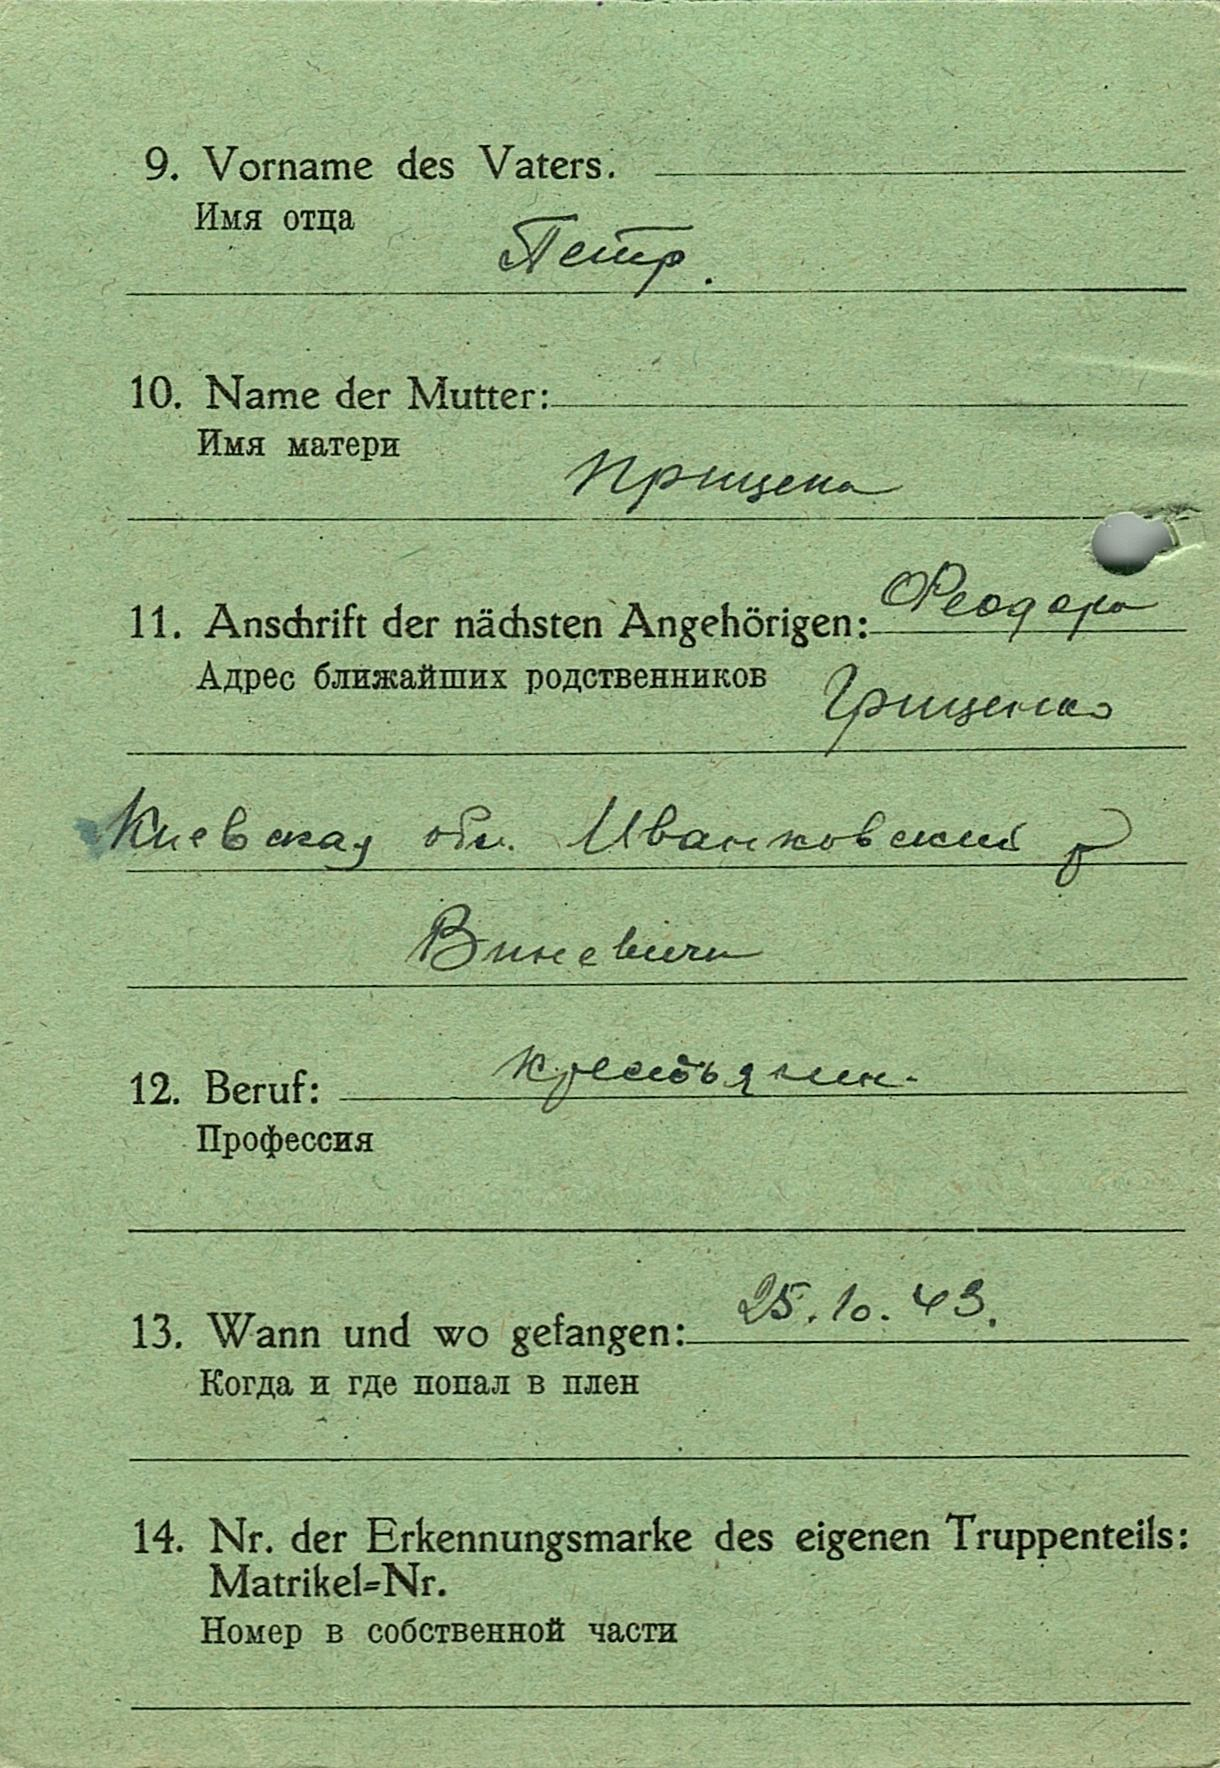 9. Vorname des Vaters.
Имя отца
Петр.
10. Name der Mutter:
Имя матери
11. Anschrift der nächsten Angehörigen: Феодора
Адрес ближайших родственников Грищенко
Киевская обл. Иванковский р
Виневичи
12. Beruf: крестьянин.
Профессия
13. Wann und wo gefangen: 25.10.43.
Когда и где попал в плен
14. Nr. der Erkennungsmarke des eigenen Truppenteils:
Matrikel=Nr.
Номер в собственной части